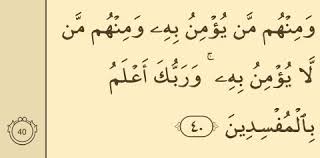 وَمِنْهُم مَّن يُؤْمِنُ بِهِۦ وَمِنْهُم مَّن
لَّا يُؤْمِنُ بِهِۦ ۚ وَرَبُّكَ أَعْلَمُ
بِٱلْمُفْسِدِينَ ٤٠
40